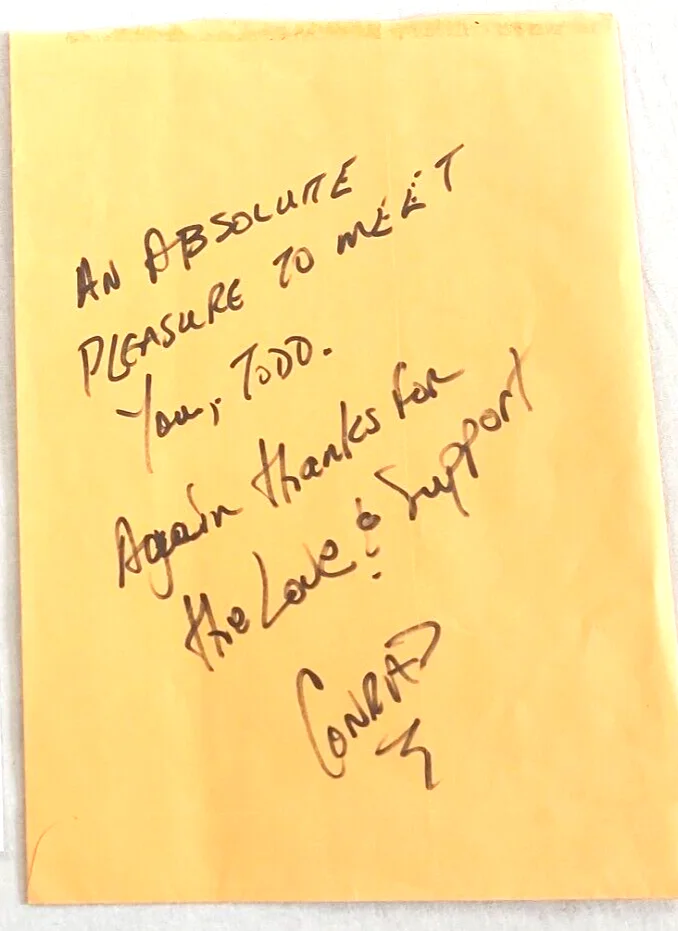 AN ABSOLUTE
PLEASURE TO MEET
You, TODD.
Again thanks for
the Love & Support
CONRAD